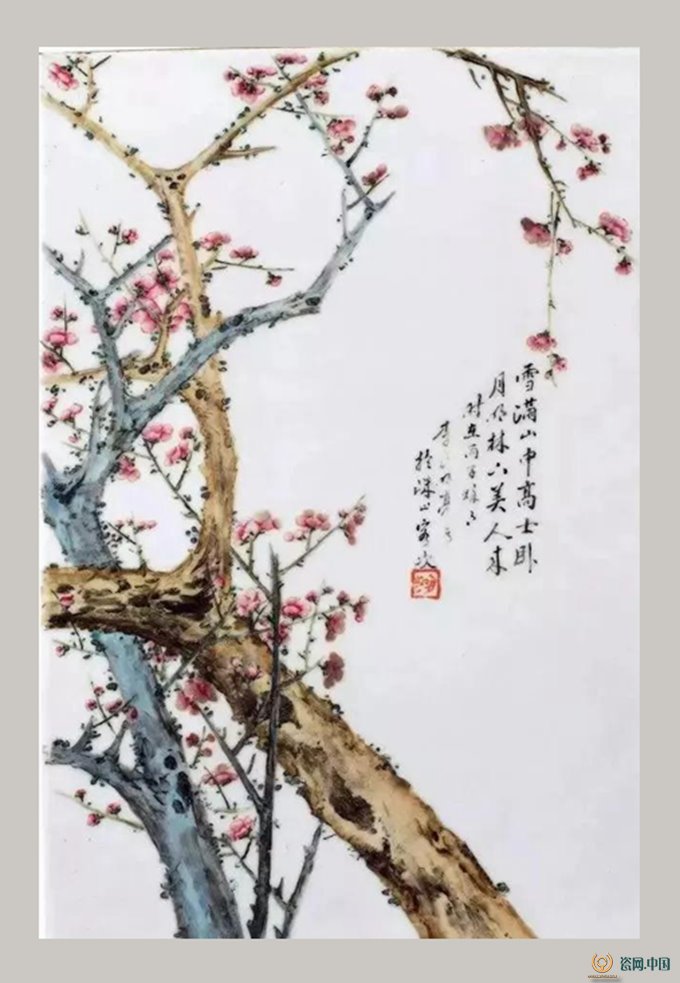 雪滿山中高士卧
月明林下美人来
时在丙子
李明亮
於珠山客次
瓷网.中国